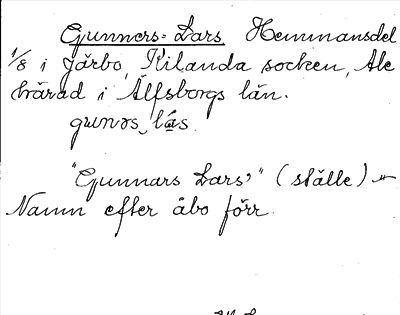 Gunners-Lars Hemmansdel
1/8 i Jårbo, Kilanda socken, Ale
härad i Älfsborgs län.
gunəs lás.
"Gunnars Lars'" (ställe)
Namn efter åbo förr.